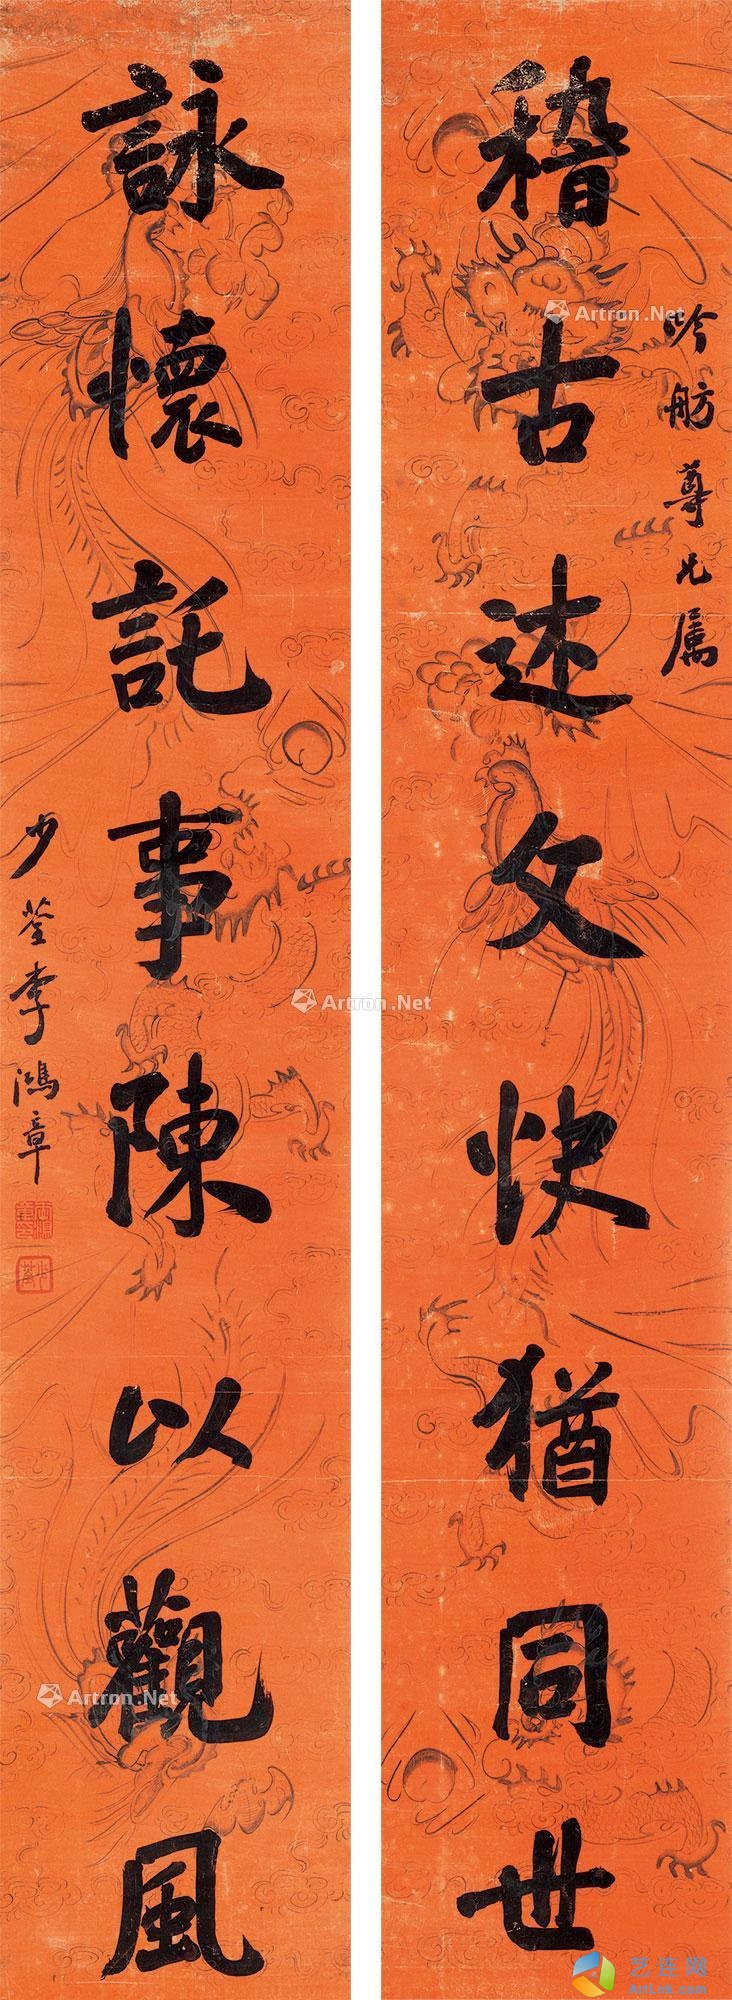 吟舫尊兄属
稽古述文快猶同世
詠懷託事陳以觀風
少荃李鴻章
Artron.Net
Artron.Net
Artron.Net
Artron.Net
艺连网
ArtLnk.com